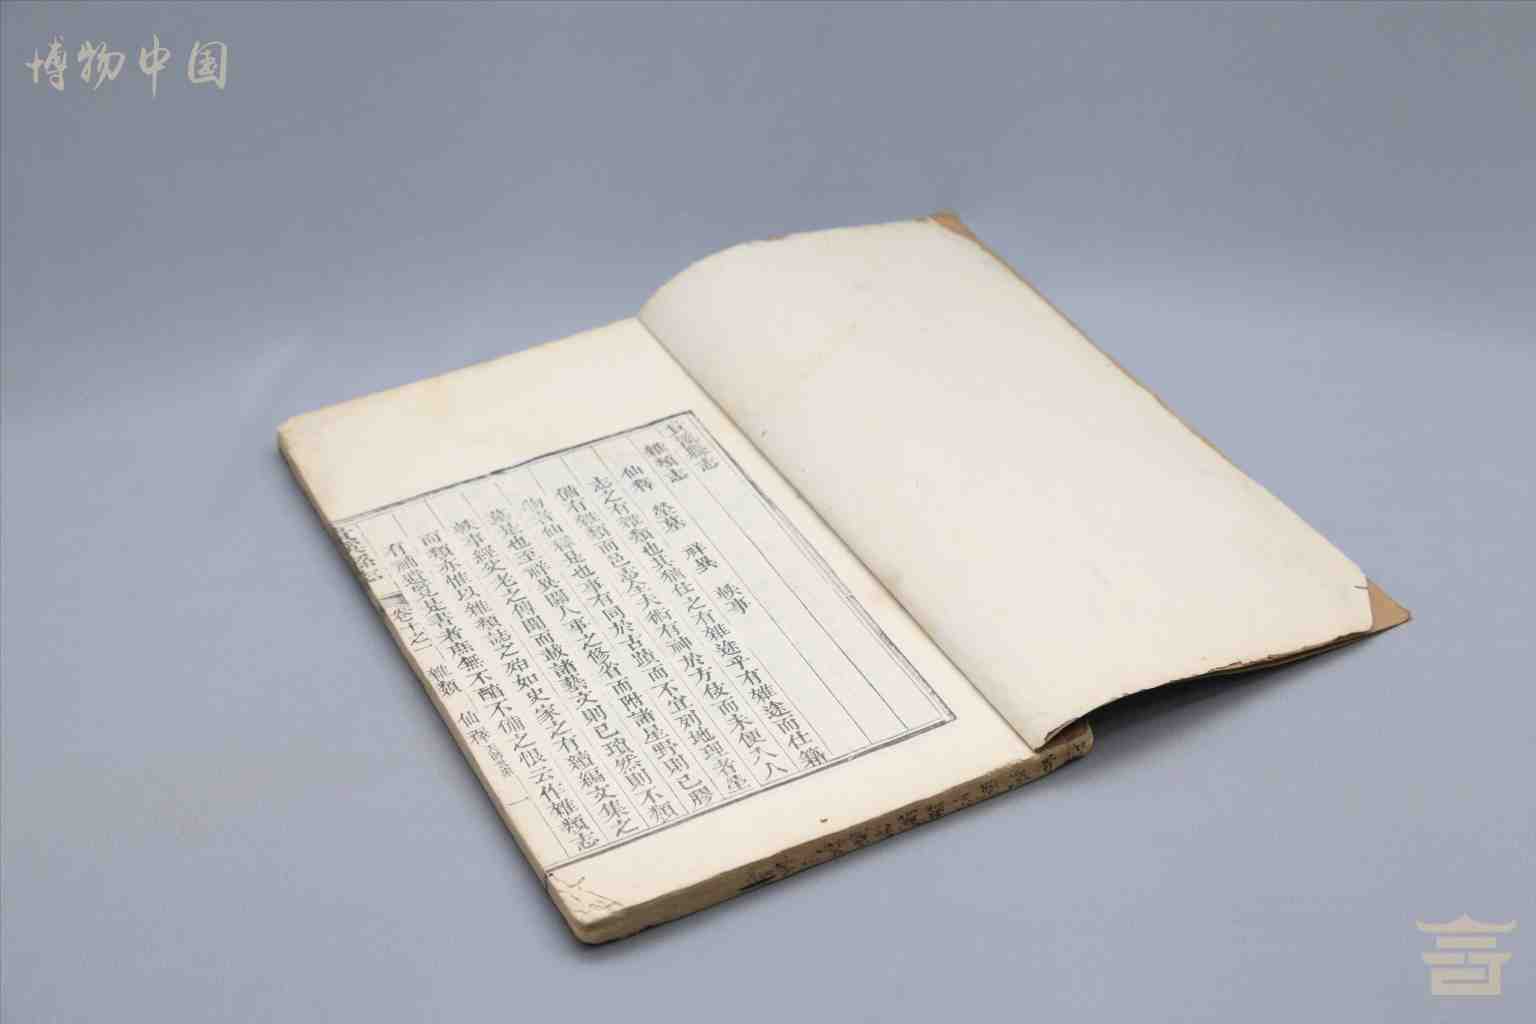 博物中国
縣志
雜類志
仙釋 塋墓 祥異 軼事
志之有雜類也其猶仕之有雜途乎有雜途而仕籍
備有雜類而邑志全夫術有神於方伎而未便入人
物者仙釋是也事有同於古蹟而不宜列地理者塋
墓是也至祥異關人事之修省而附諸星野則已膠
軼事經父老之傳聞而載諸藝文則已瑣然則不類
而類亦惟以雜類誌之殆如史家之有續編文集之
有補遺是書者庶無不不備之恨云作雜類志
卷十之一 雜類 仙釋 一